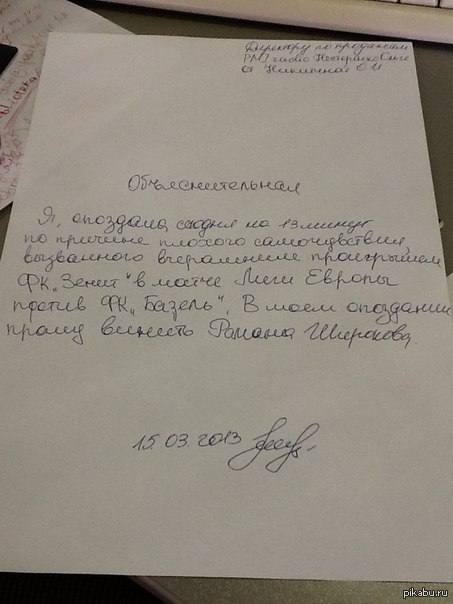 Директору по продажам
от Никитиной О.И
Объяснительная
Я, опоздала сегодня на 13 минут
по причине плохого самочувствия,
вызванного вчерашнем проигрышем
ФК „Зенит" в матче Лиги Европы
против ФК „Базель". В моем опоздании
прошу винить Романа Широкова
15.03.2013
pikabu.ru